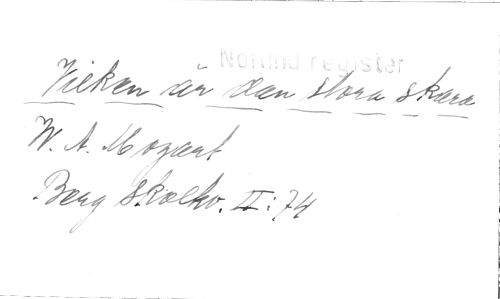 Notfynd register
Vilken är den stora skara
W. A. Mozart
Berg Skolkv. II:74